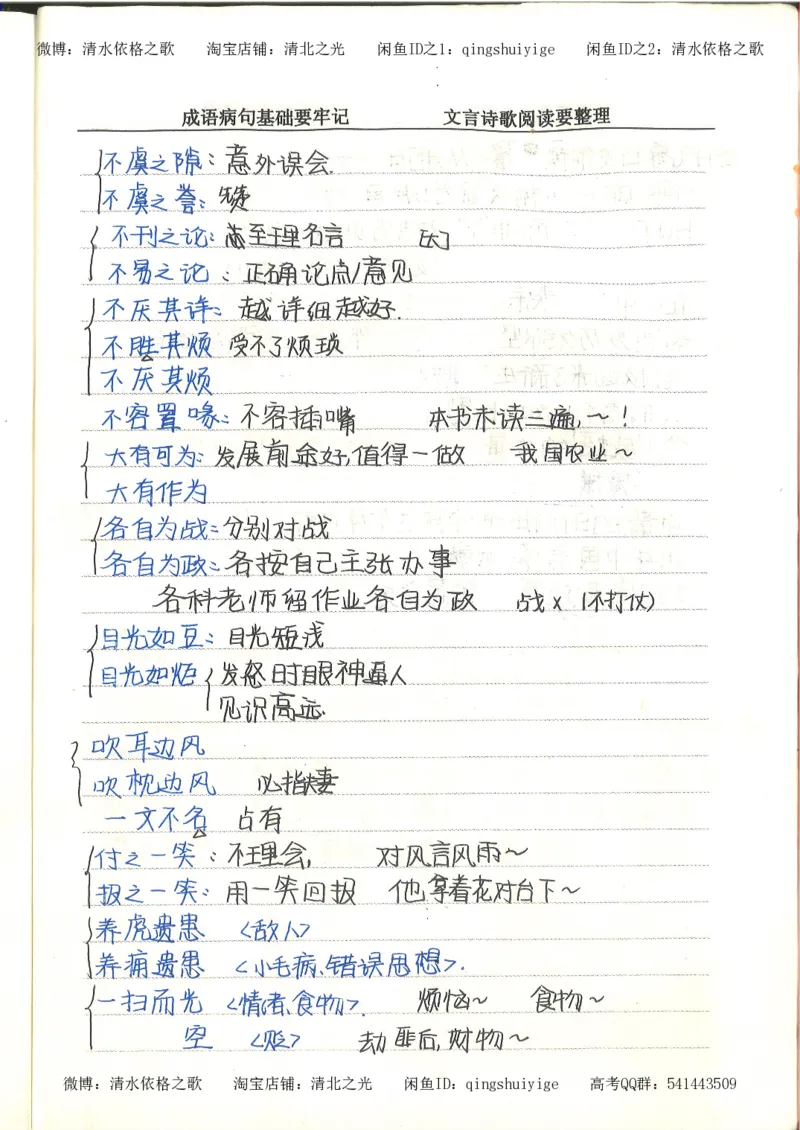 微博：清水依格之歌 淘宝店铺：清北之光 闲鱼ID之1：qingshuiyige 闲鱼ID之2：清水依格之歌
成语病句基础要牢记 文言诗歌阅读要整理
不虞之隙：意外误会.
不虞之誉：
不刊之论：至理名言
不易之论：正确论点/意见
不厌其详：越详细越好.
不胜其烦 受不了烦琐
不厌其烦
不容置喙：不容插嘴 本书未读三遍,～！
大有可为：发展前途好,值得一做 我国农业～
大有作为
各自为战：分别对战
各自为政：各按自己主张办事
各科老师留作业各自为政 战× (不打仗)
目光如豆：目光短浅
目光如炬 发怒时眼神逼人
见识高远.
吹耳边风
吹枕边风 必指夫妻
一文不名 占有
付之一笑：不理会, 对风言风雨～
报之一笑：用一笑回报 他拿着花对台下～
养虎遗患 <敌人>
养痈遗患 <小毛病、错误思想>.
一扫而光 <情绪、食物>. 烦恼～ 食物～
空 <贬> 劫匪后,财物～
微博：清水依格之歌 淘宝店铺：清北之光 闲鱼ID：qingshuiyige 高考QQ群：541443509